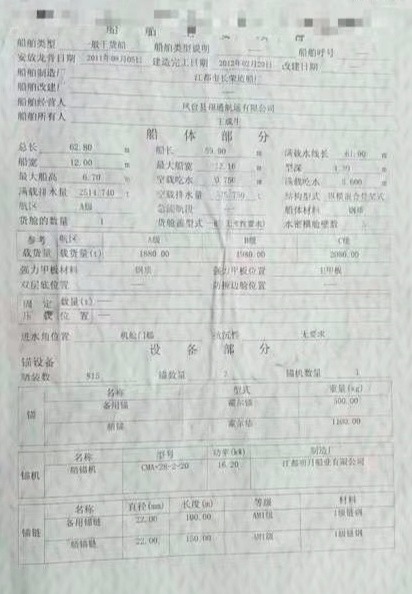 船舶类型 一般干货船 船舶类型说明 船舶呼号
安放龙骨日期 2011年09月05日 建造完工日期 2012年02月20日 改建日期
船舶制造厂 江都市长荣造船厂
船舶改建厂
船舶经营人 凤台县 航运有限公司
船舶所有人 王成生
船体部分
总长 62.80 m 船长 59.90 m 满载水线长 61.90 m
船宽 12.00 m 最大船宽 m 型深 m
最大船高 6.70 m 空载吃水 0.750 m 满载吃水 3.600 m
满载排水量 2514.740 t 空载排水量 t 结构型式
航区 A级 急流航段 船体材料 钢质
货舱的数量 1 货舱盖型式 水密横舱壁数
参考 航区 A级 B级 C级
载货量 载货量(t) 1880.00 1980.00 2080.00
强力甲板材料 钢质 强力甲板位置 主甲板
双层底位置 双舷边舱位置
固定 数量(t)
压载 位置
进水角位置 机舱门槛 抗沉性 无要求
设备部分
锚设备
舾装数 815 锚数量 2 锚机数量 1
名称 型式 重量(kg)
锚 备用锚 霍尔锚 500.00
艏锚 霍尔锚 1100.00
名称 型号 功率(kW) 制造厂
锚机 艏锚机 CMA-28-2-20 16.20 江都明月船业有限公司
名称 直径(mm) 长度(m) 等级 材料
锚链 备用锚链 22.00 100.00 AM1级 1级链钢
艏锚链 22.00 150.00 AM1级 1级链钢